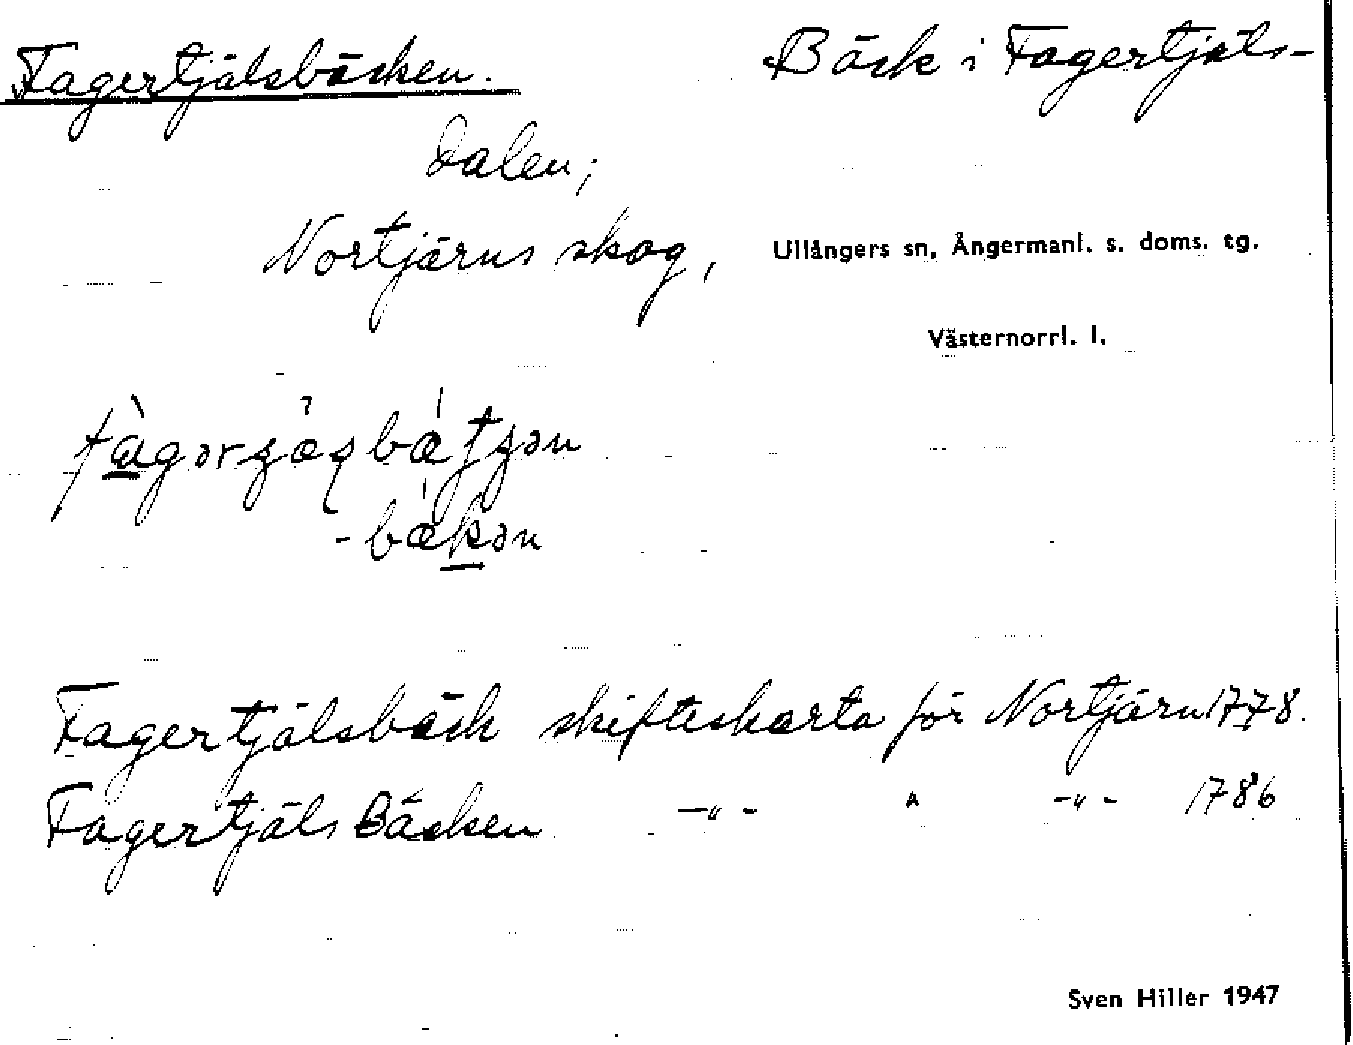 Fagertjälsbäcken. Bäck i Fagertjäls-
dalen;
Nortjärns skog, Ullångers sn, Ångermanl. s. doms. tg.
Västernorrl. l.
Fagertjälsbäck skifteskarta för Nortjärn 1778.
Fagertjäls Bäcken -"- ^ -"- 1786
Sven Hiller 1947